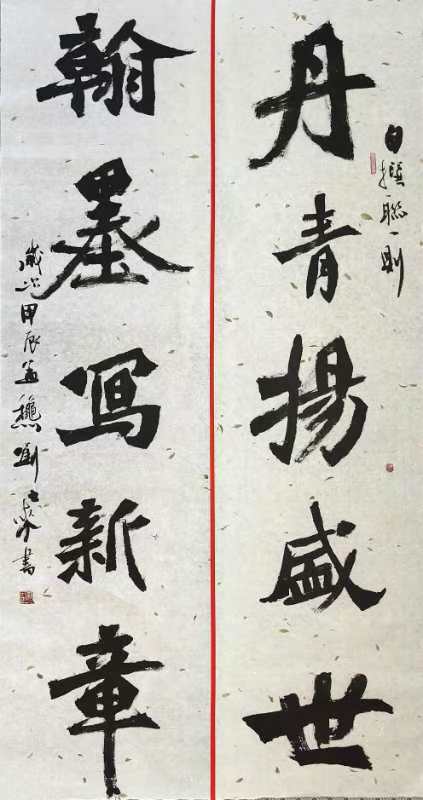 自撰聯一則
丹青揚盛世
翰墨寫新章
歲次甲辰孟龝劉書